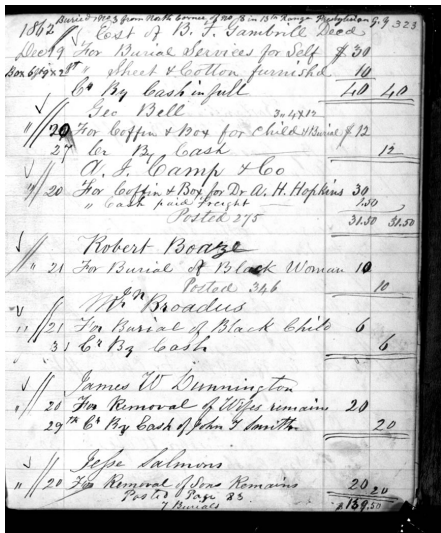 Buried No 3 from North Corner of No 18 in 13th Range Presbyterian G. Y. 323
1862 Est of B. F. Gambrill Decd
Dec 19 For Burial Services for Self $ 30
Box 6/9 x 28" " Sheet & Cotton furnishd 10
Cr By Cash in full 40 40
Geo Bell
" 20 For Coffin & Box for Child & Burial $ 12
27 Cr By Cash 12
A. J. Camp & Co
" 20 For Coffin & Box for Dr A. H. Hopkins 30
" Cash paid Freight 1.50
Posted 275 31.50 31.50
Robert Boaze
" 21 For Burial of Black Woman 10
Posted 346 10
Mr Jn Broadus
" 21 For Burial of Black Child 6
31 Cr By Cash 6
James W Dunnington
" 20 For Removal of Wifes remains 20
29th Cr By Cash of John T Smith 20
Jesse Salmons
" 20 For Removal of Sons Remains 20 20
Posted Page 83
7 Burials $139.50